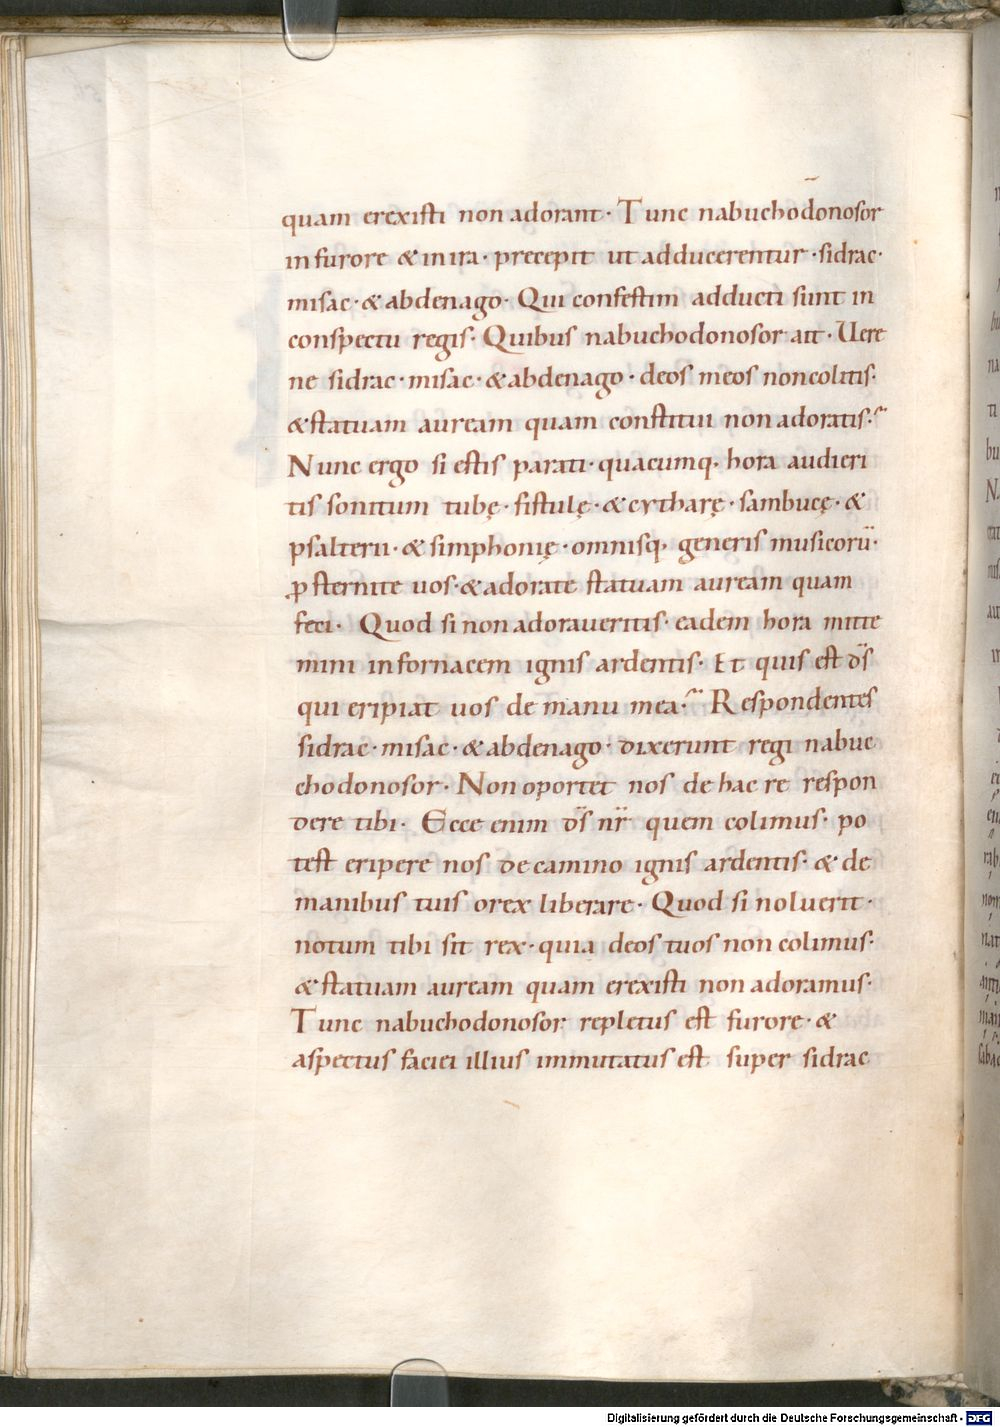 quam erexisti non adorant · Tunc nabuchodonosor
in furore & in ira · precepit ut adducerentur · sidrac ·
misac · & abdenago · Qui confestim adducti sunt in
conspectu regis · Quibus nabuchodonosor ait · Uere
ne sidrac · misac · & abdenago · deos meos non colitis ·
& statuam auream quam constitui non adoratis ·
Nunc ergo si estis parati · quacumq· hora audieri
tis sonitum tubę · fistulę · & cytharę · sambucę · &
psalterii · & simphonię · omnisq· generis musicorū ·
ꝓsternite uos · & adorate statuam auream quam
feci · Quod si non adoraueritis · eadem hora mitte
mini in fornacem ignis ardentis · Et quis est d̄s
qui eripiat uos de manu mea · Respondentes
sidrac · misac · & abdenago · dixerunt regi nabuc
chodonosor · Non oportet nos de hac re respon
dere tibi · Ecce enim d̄s nr̄ quem colimus · po
test eripere nos de camino ignis ardentis · & de
manibus tuis o rex liberare · Quod si noluerit ·
notum tibi sit rex · quia deos tuos non colimus ·
& statuam auream quam erexisti non adoramus ·
Tunc nabuchodonosor repletus est furore · &
aspectus faciei illius immutatus est super sidrac
Digitalisierung gefördert durch die Deutsche Forschungsgemeinschaft - DFG